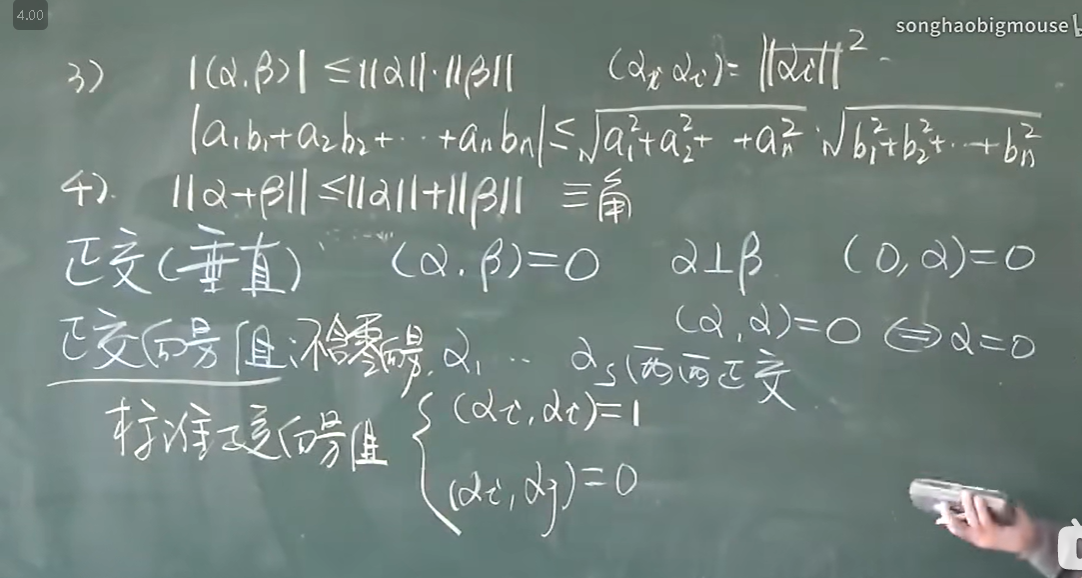 4.00
songhaobigmouse
3) |(α,β)| ≤ ||α||·||β|| (αi αi)= ||αi||²
|a₁b₁+a₂b₂+···+aₙbₙ| ≤ √(a₁²+a₂²+ +aₙ²) · √(b₁²+b₂²+··+bₙ²)
4). ||α+β|| ≤ ||α||+||β|| 三角
正交(垂直) (α,β)=0 α⊥β (0,α)=0
(α,α)=0 ⇔ α=0
正交向量组:不含零向量, α₁ ··· αs 两两正交
标准正交向量组 { (αi,αi)=1
(αi,αj)=0